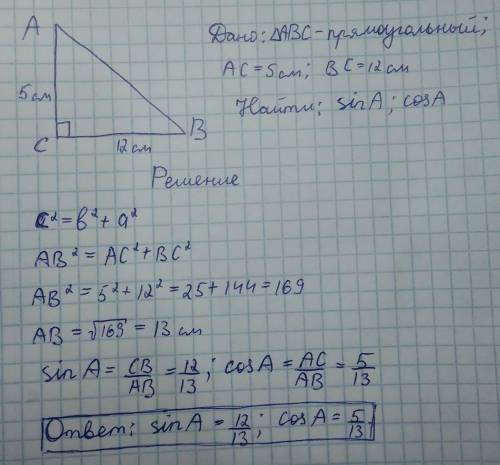 A
5см
C
12см
B
Дано: ΔABC - прямоугольный;
AC = 5см; BC = 12см
Найти: sinA; cosA
Решение
c² = b² + a²
AB² = AC² + BC²
AB² = 5² + 12² = 25 + 144 = 169
AB = √169 = 13 см
sin A = CB/AB = 12/13; cosA = AC/AB = 5/13
Ответ: sinA = 12/13; cosA = 5/13.